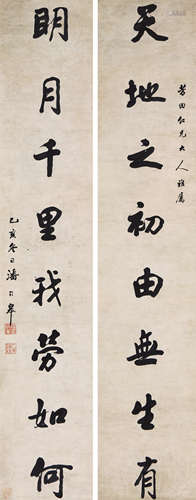 芳田仁兄大人雅属
天地之初由無生有
明月千里我勞如何
乙亥冬日潘齡皋